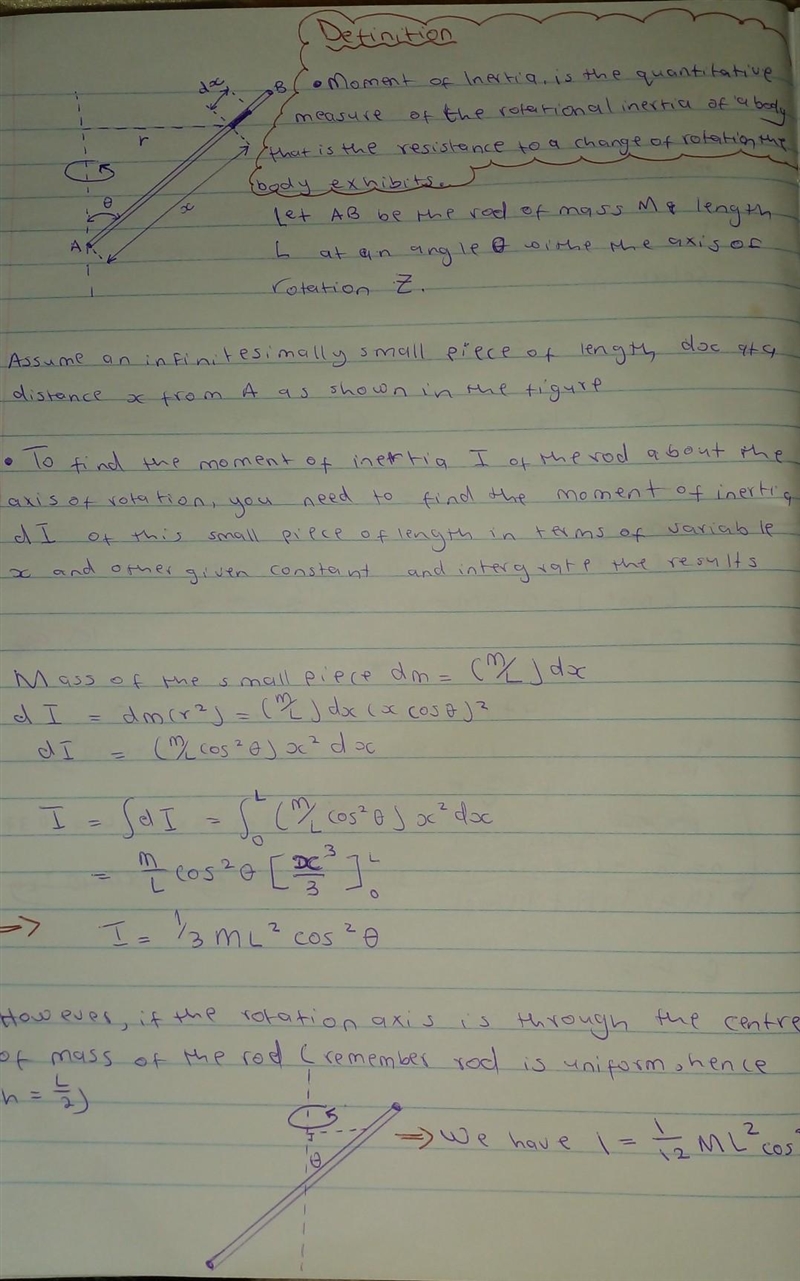 Definition
• Moment of Inertia, is the quantitative
measure of the rotational inertia of a body
that is the resistance to a change of rotation the
body exhibits.
dx
B
r
θ
x
A
Let AB be the rod of mass M & length
L at an angle θ withe the axis of
rotation Z.
Assume an infinitesimally small piece of length, dx at a
distance x from A as shown in the figure
• To find the moment of inertia I of the rod about the
axis of rotation, you need to find the moment of inertia
dI of this small piece of length in terms of variable
x and other given constant and intergrate the results
Mass of the small piece dm = (M/L) dx
dI = dm(r²) = (M/L) dx (x cosθ)²
dI = (M/L cos²θ) x² dx
I = ∫dI = ∫₀ᴸ (M/L cos²θ) x² dx
= M/L cos²θ [x³/3]₀ᴸ
=> I = 1/3 ML² cos²θ
However, if the rotation axis is through the centre
of mass of the rod (remember rod is uniform, hence
h = L/2)
θ
=> We have I = 1/12 ML² cos²